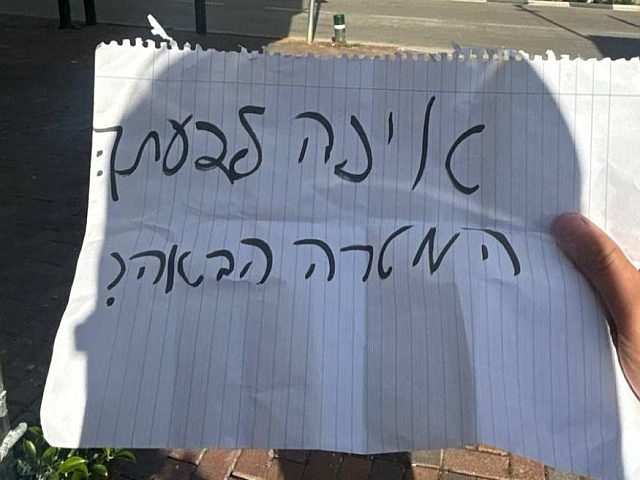 איזה לדעתך:
המטרה הבאה?